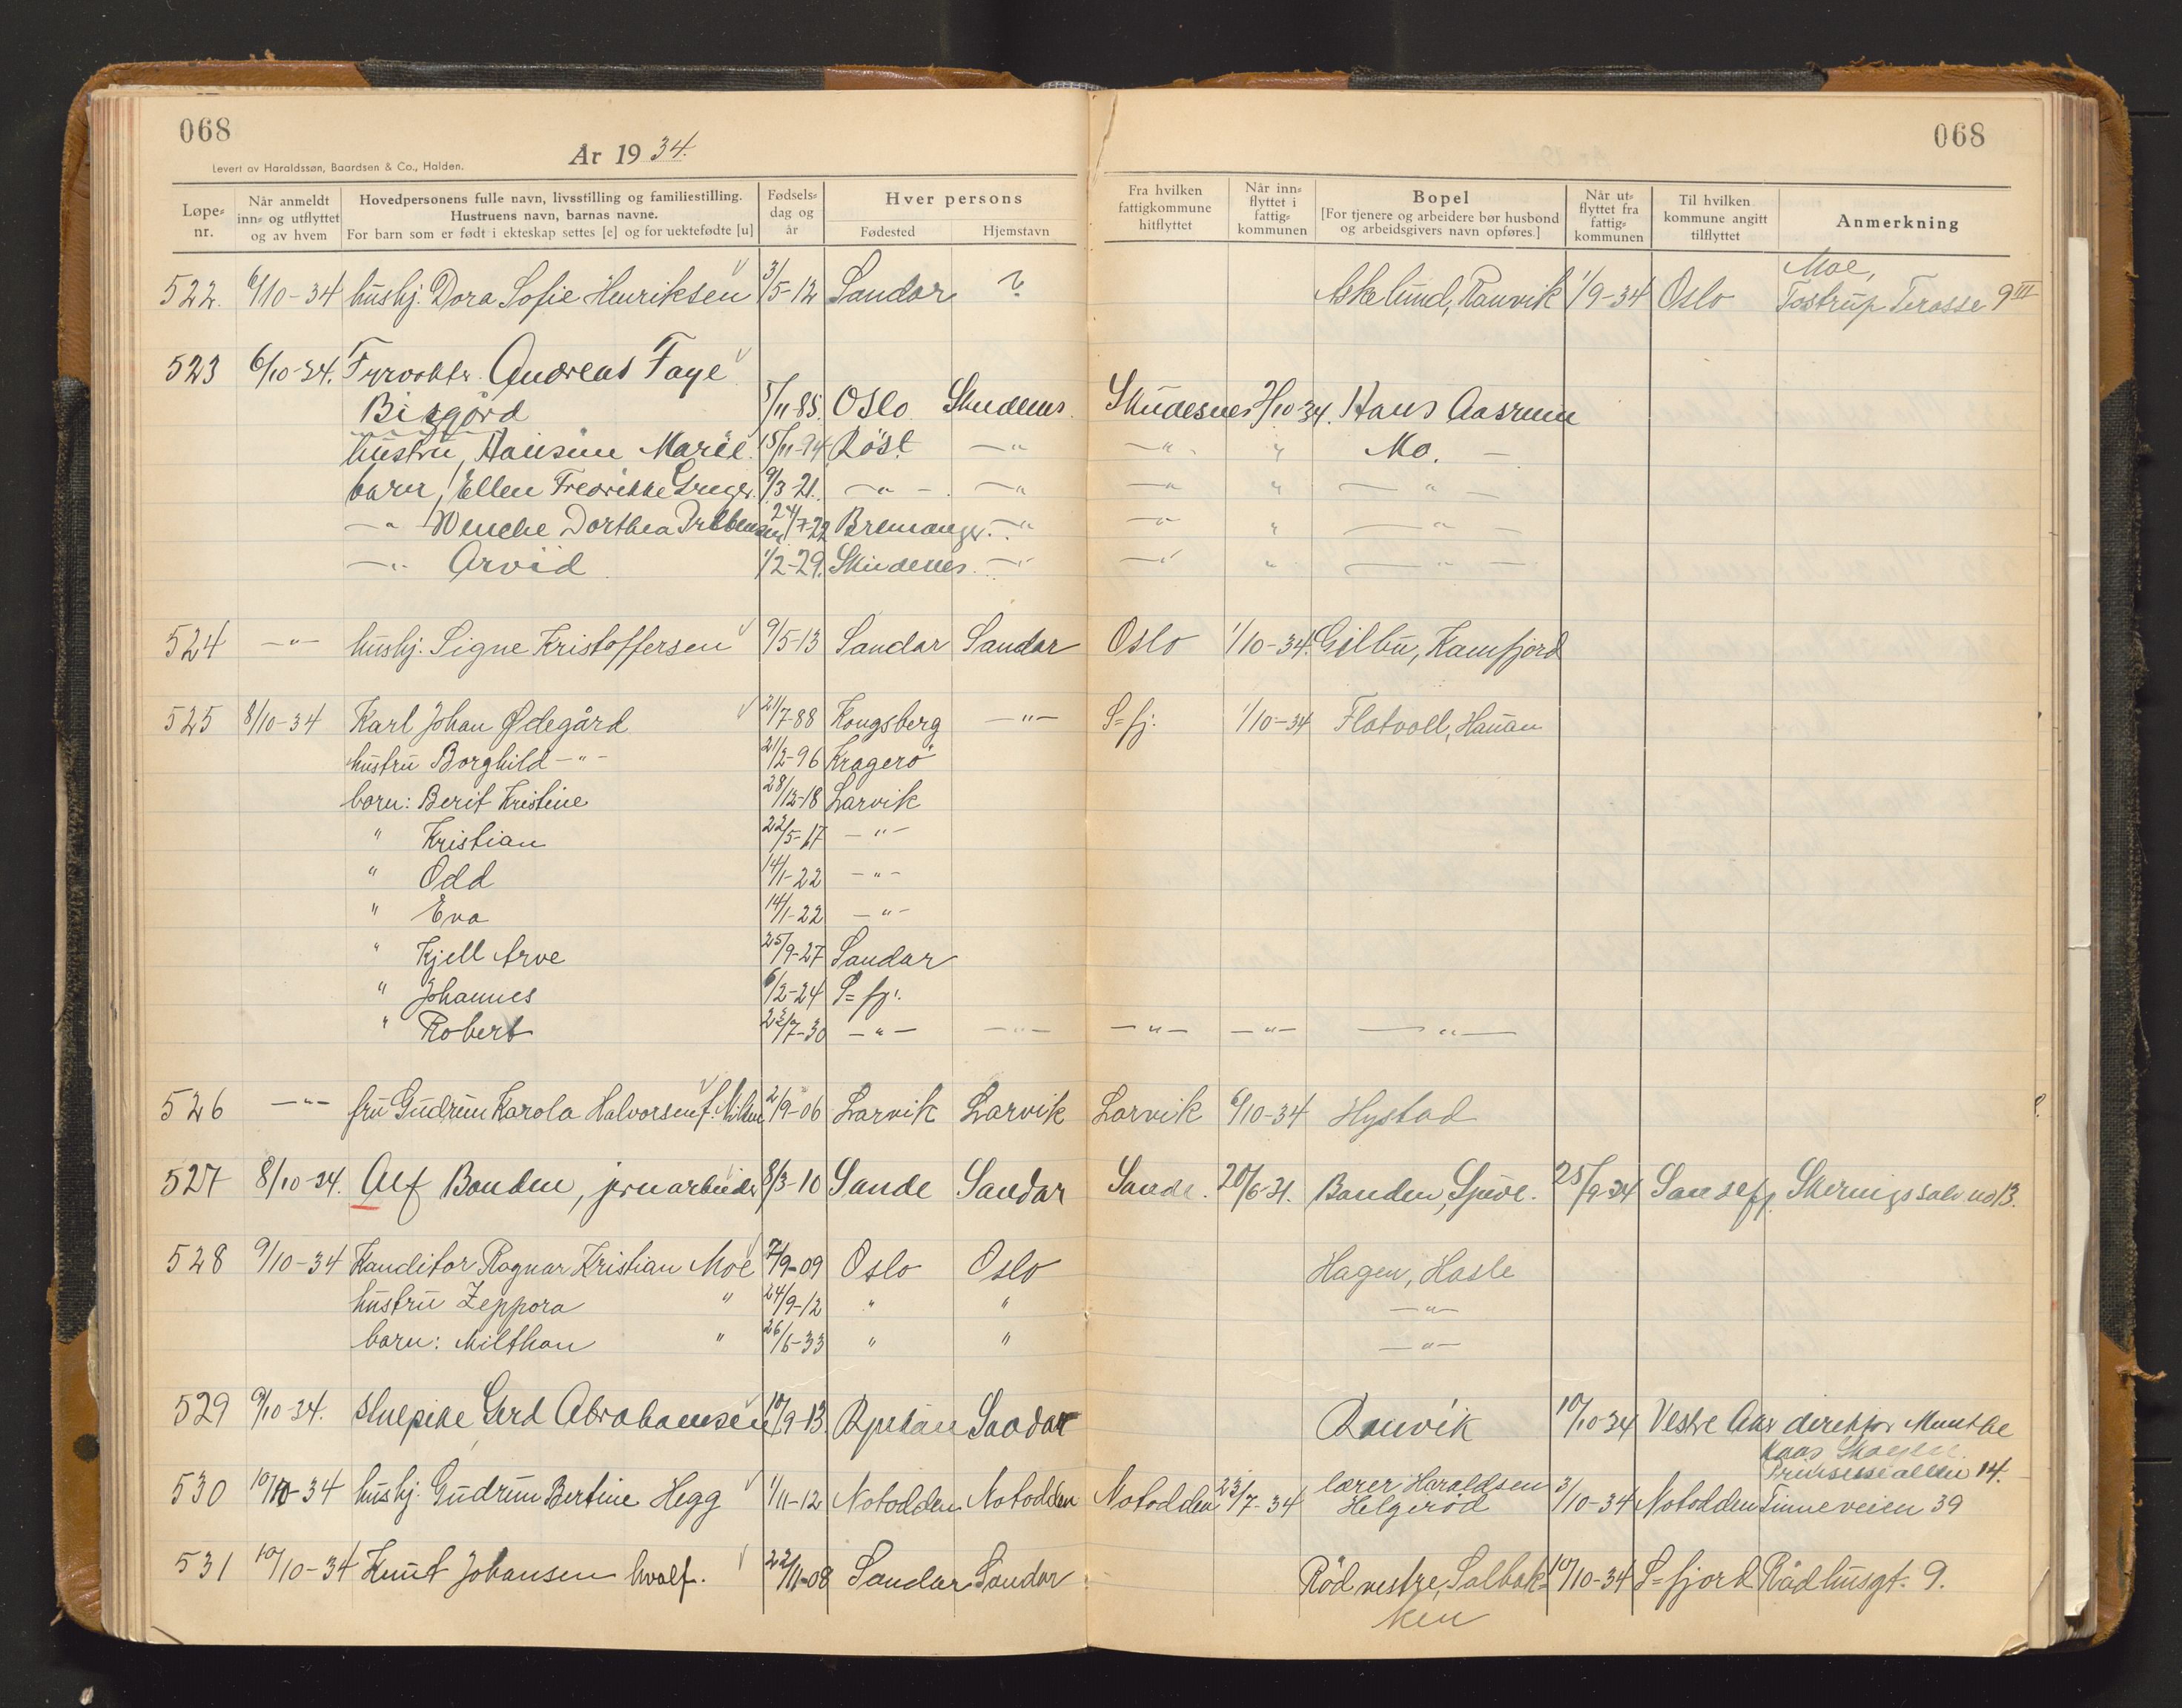 068
068
År 1934.
Levert av Haraldssøn, Baardsen & Co., Halden.
Løpe-nr. Når anmeldt inn- og utflyttet og av hvem Hovedpersonens fulle navn, livsstilling og familiestilling. Hustruens navn, barnas navne. For barn som er født i ekteskap settes [e] og for uektefødte [u] Fødsels-dag og år Hver persons Fødested Hjemstavn Fra hvilken fattigkommune hitflyttet Når inn-flyttet i fattig-kommunen Bopel [For tjenere og arbeidere bør husbond og arbeidsgivers navn opføres.] Når ut-flyttet fra fattig-kommunen Til hvilken kommune angitt tilflyttet Anmerkning
Moe,
522. 6/10-34 hushj. Dora Sofie Henriksen 3/5-12 Sandar ? Askelund, Ranvik 1/9-34 Oslo Tostrup Terasse 9 III
523 6/10-34. Fyrvokter Andreas Faye
Bisgård 5/11-85. Oslo Skudenes Skudesnes 2/10-34. Hans Aasrum
hustru, Hansine Marie 15/11-94 Röst -"- -"- " Mo. -
barn, Ellen Fredrikke Greger. 9/3-21. -"- -"- -"- " -"-
-"- Wenche Dorthea 24/7-22 Bremanger. -"- -"- " -"-
-"- Arvid 1/2-29. Skudenes -"- -"- " -"-
524 -"- hushj. Signe Kristoffersen 9/5-13 Sandar Sandar Oslo 1/10-34. Gilbu, Kamfjord
525 8/10-34 Karl Johan Ødegård 21/7-88 Kongsberg -"- S=fj. 1/10-34 Flatvoll, Hauan
hustru Borghild -"- 21/2-96 Kragerö
barn: Berit Kristine 28/12-18 Larvik
" Kristian 22/5-17 -"-
" Odd 14/1-22 -"-
" Eva 14/1-22 -"-
" Kjell Arve 25/9-27 Sandar
" Johannes 6/2-24 S=fj.
" Robert 23/7-30 -"- -"- -"- -"- -"-
526 -"- fru Gudrun Karola Halvorsen f. Nilsen 2/9-06 Larvik Larvik Larvik 6/10-34 Hystad
527 8/10-34. Alf Bonden, jernarbeider 8/3-10 Sande Sandar Sande. 20/6-31. Banden, 25/9-34 Sandefj.
528 9/10-34 Kanditor Ragnar Kristian Moe 7/9-09 Oslo Oslo Hagen, Hasle
hustru Zeppora " 24/9-12 " " -"-
barn: Milthon " 26/6-33 " " -"-
529 9/10-34. stuepike Gerd Abrahamsen 10/9-13. Rjukan Sandar Ranvik 10/10-34 Vestre Aker direktør Munthe
Kaas
14.
530 10/10-34 hushj. Gudrun Bertine Hegg 1/11-12 Notodden Notodden Notodden 23/7-34 lærer Haraldsen
Helgeröd 3/10-34 Notodden Tinneveien 39
531 10/10-34 Knut Johansen hvalf. 22/11-08 Sandar Sandar Röd vestre, Solbak- 10/10-34 S=fjord Rådhusgt. 9.
ken